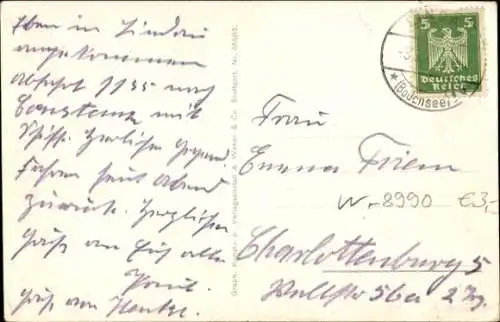 Eben in Lindau
angekommen
abfahrt 1135 nach
Constanz mit
Schiff. Herrliche Gegend
Fahren heut Abend
zurück. Herzlichen
Gruß an Euch alle
Gruß an
Graph. Kunst- u. Verlagsanstalt A. Weber & Co. Stuttgart, No.
5 5
Deutsches
Reich
(Bodensee)
Frau
Emma Friem
W-8990 €3,-
Charlottenburg 5
Wallstr 56a 2 Trg.